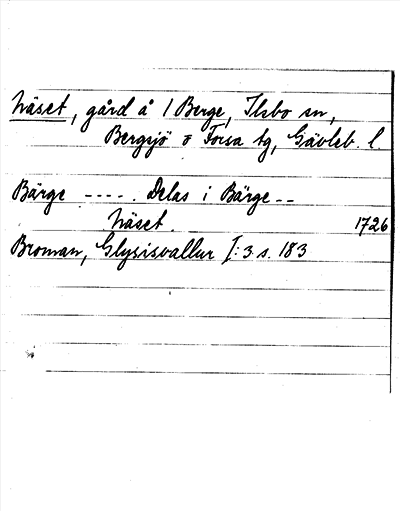 Näset, gård å 1 Berge, Ilsbo sn,
Bergsjö o Forsa tg, Gävleb. l.
Bärge ----. Delas i Bärge --
Näset. 1726
Broman, Glysisvallur I:3 s. 183